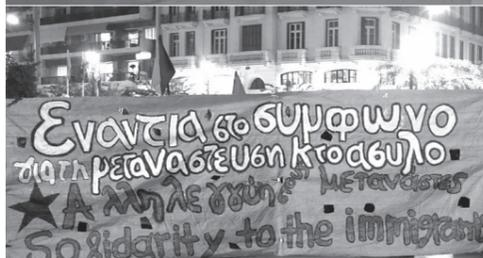 Εναντια στο συμφωνο
για τη μεταναστευση κ το ασυλο
Αλληλεγγύη σ' μετανάστες
Solidarity to the immigrant